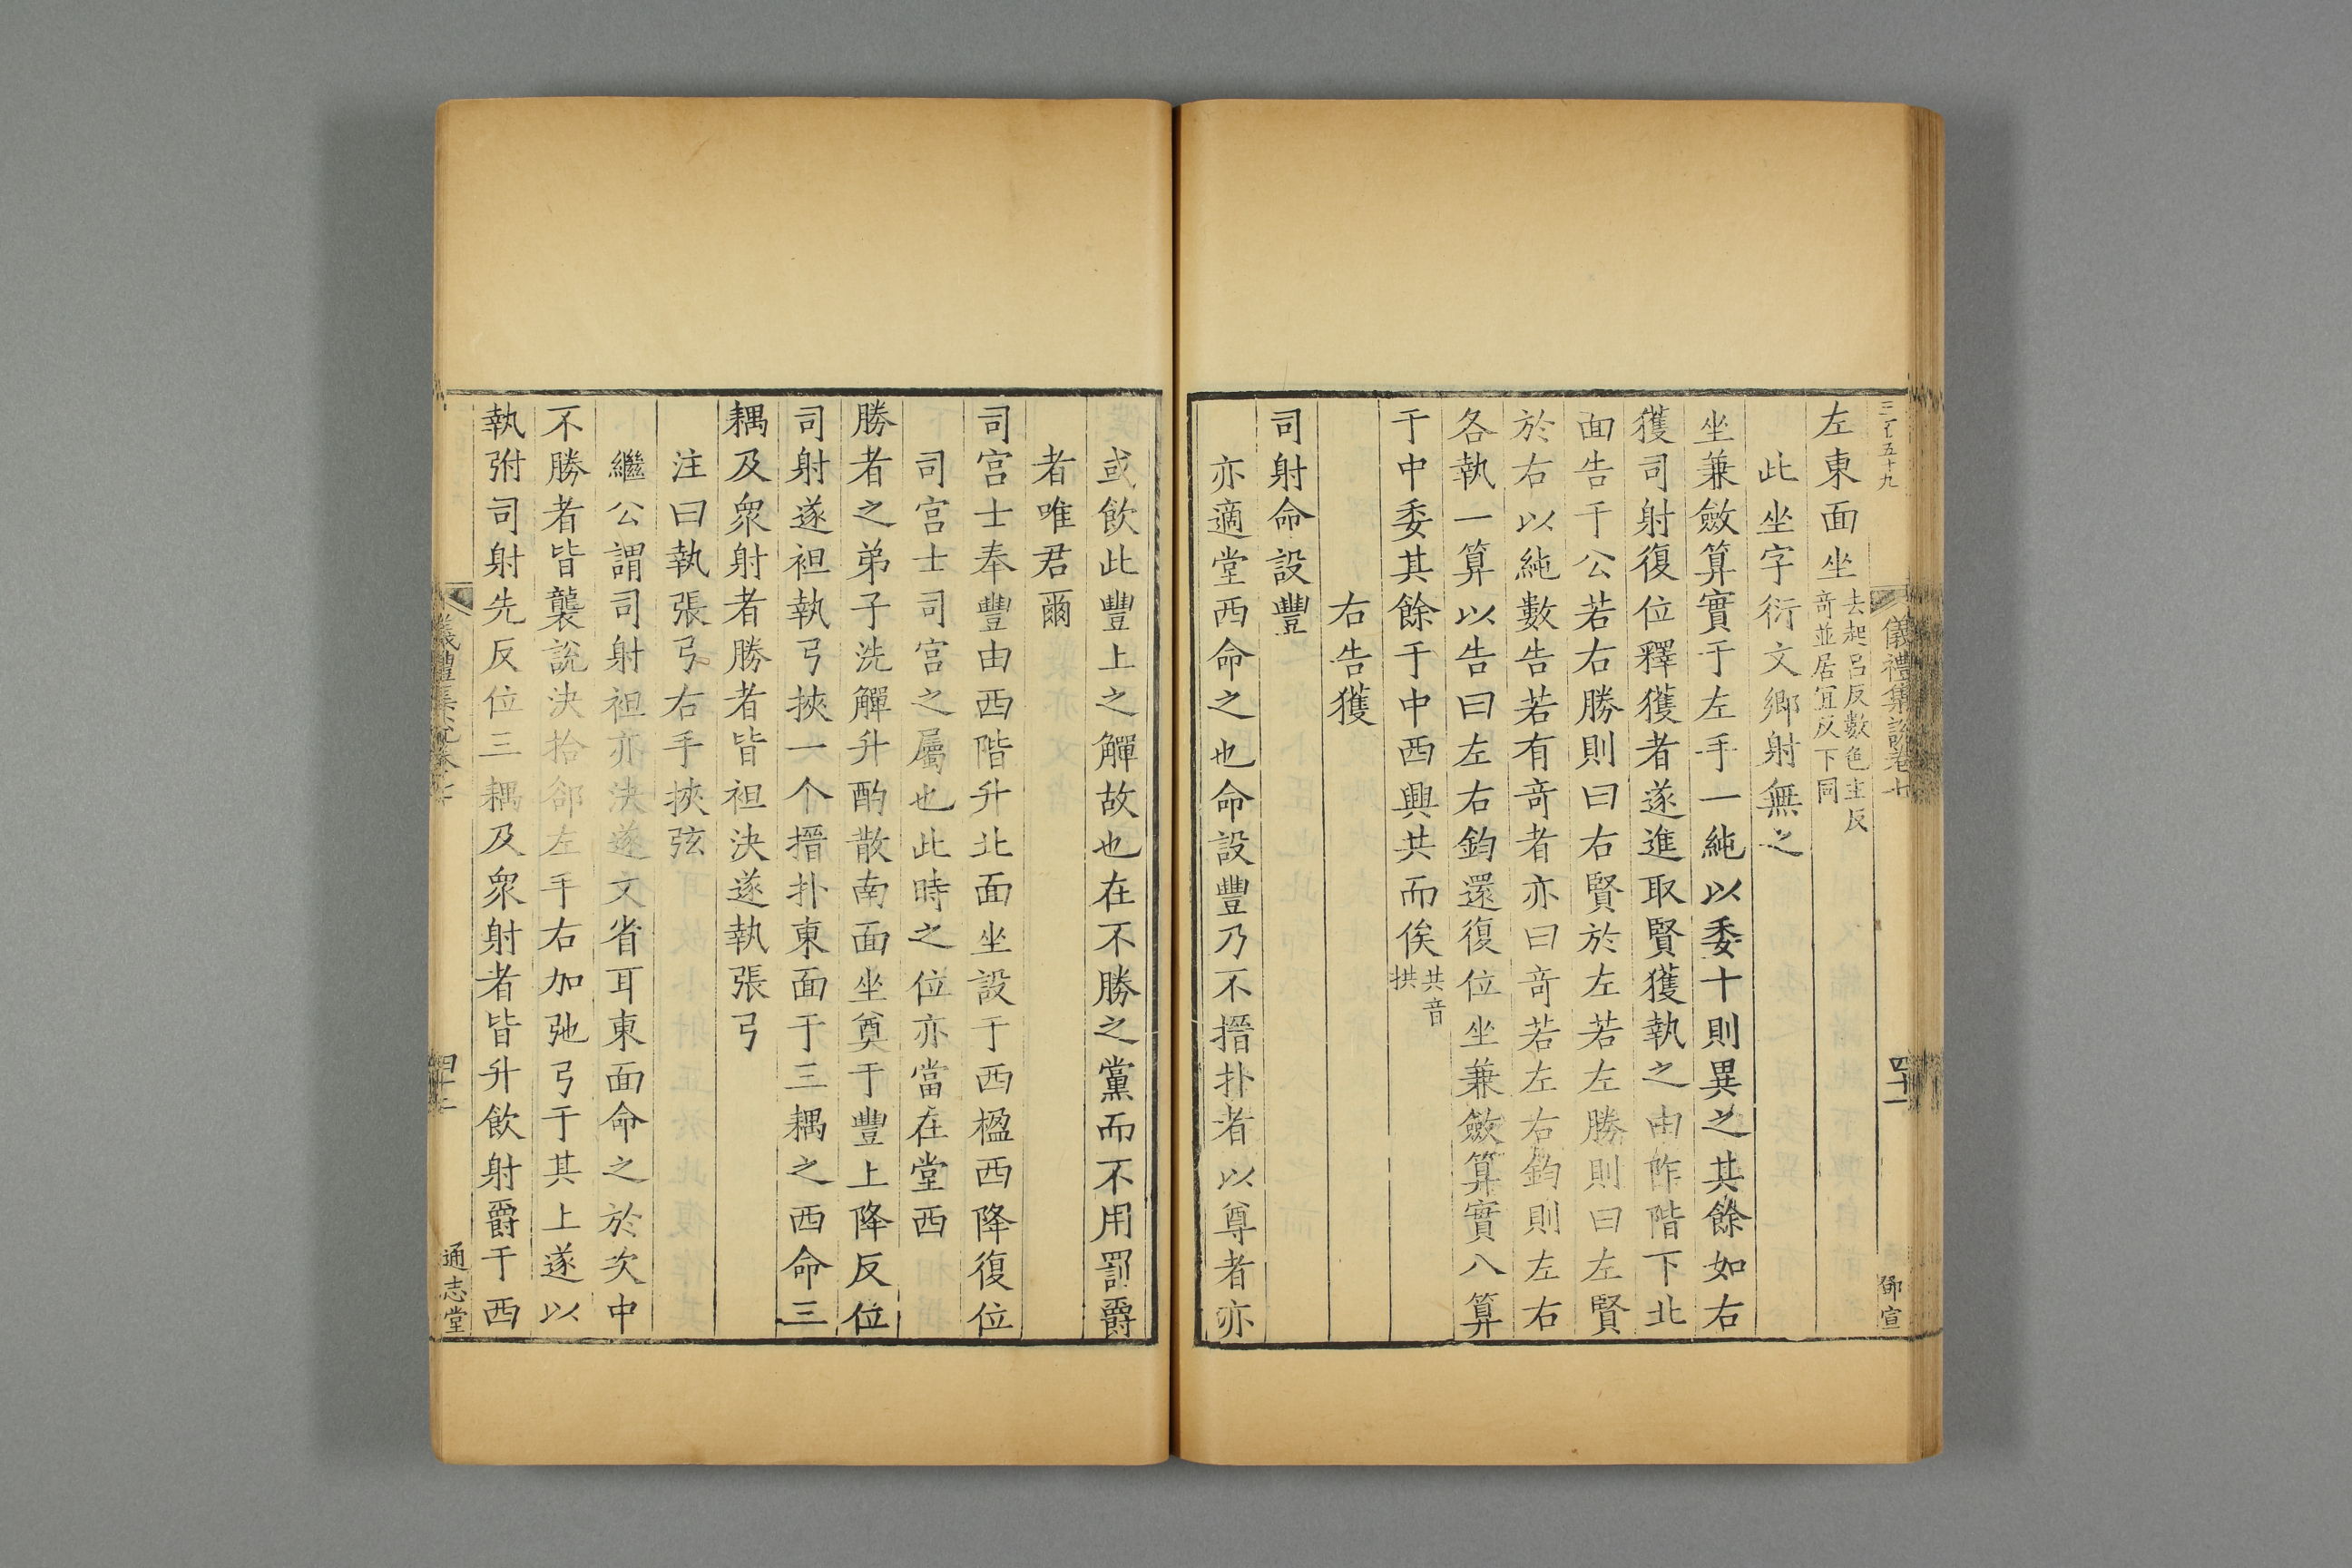 儀禮集説卷七
四十一
鄧宣
左東面坐去起呂反數色主反奇並居宜反下同
此坐字衍文鄉射無之
坐兼斂算實于左手一純以委十則異之其餘如右
獲司射復位釋獲者遂進取賢獲執之由阼階下北
面告于公若右勝則曰右賢於左若左勝則曰左賢
於右以純數告若有奇者亦曰奇若左右鈞則左右
各執一算以告曰左右鈞還復位坐兼斂算實八算
于中委其餘于中西興共而俟共音拱
右告獲
司射命設豐
亦適堂西命之也命設豐乃不搢扑者以尊者亦
或飲此豐上之觶故也在不勝之黨而不用罰爵
者唯君爾
司宮士奉豐由西階升北面坐設于西楹西降復位
司宮士司宮之屬也此時之位亦當在堂西
勝者之弟子洗觶升酌散南面坐奠于豐上降反位
司射遂袒執弓挾一个搢扑東面于三耦之西命三
耦及衆射者勝者皆袒決遂執張弓
注曰執張弓右手挾弦
繼公謂司射袒亦決遂文省耳東面命之於次中
不勝者皆襲說決拾卻左手右加弛弓于其上遂以
執弣司射先反位三耦及衆射者皆升飲射爵于西
儀禮集說卷七
四十二
通志堂